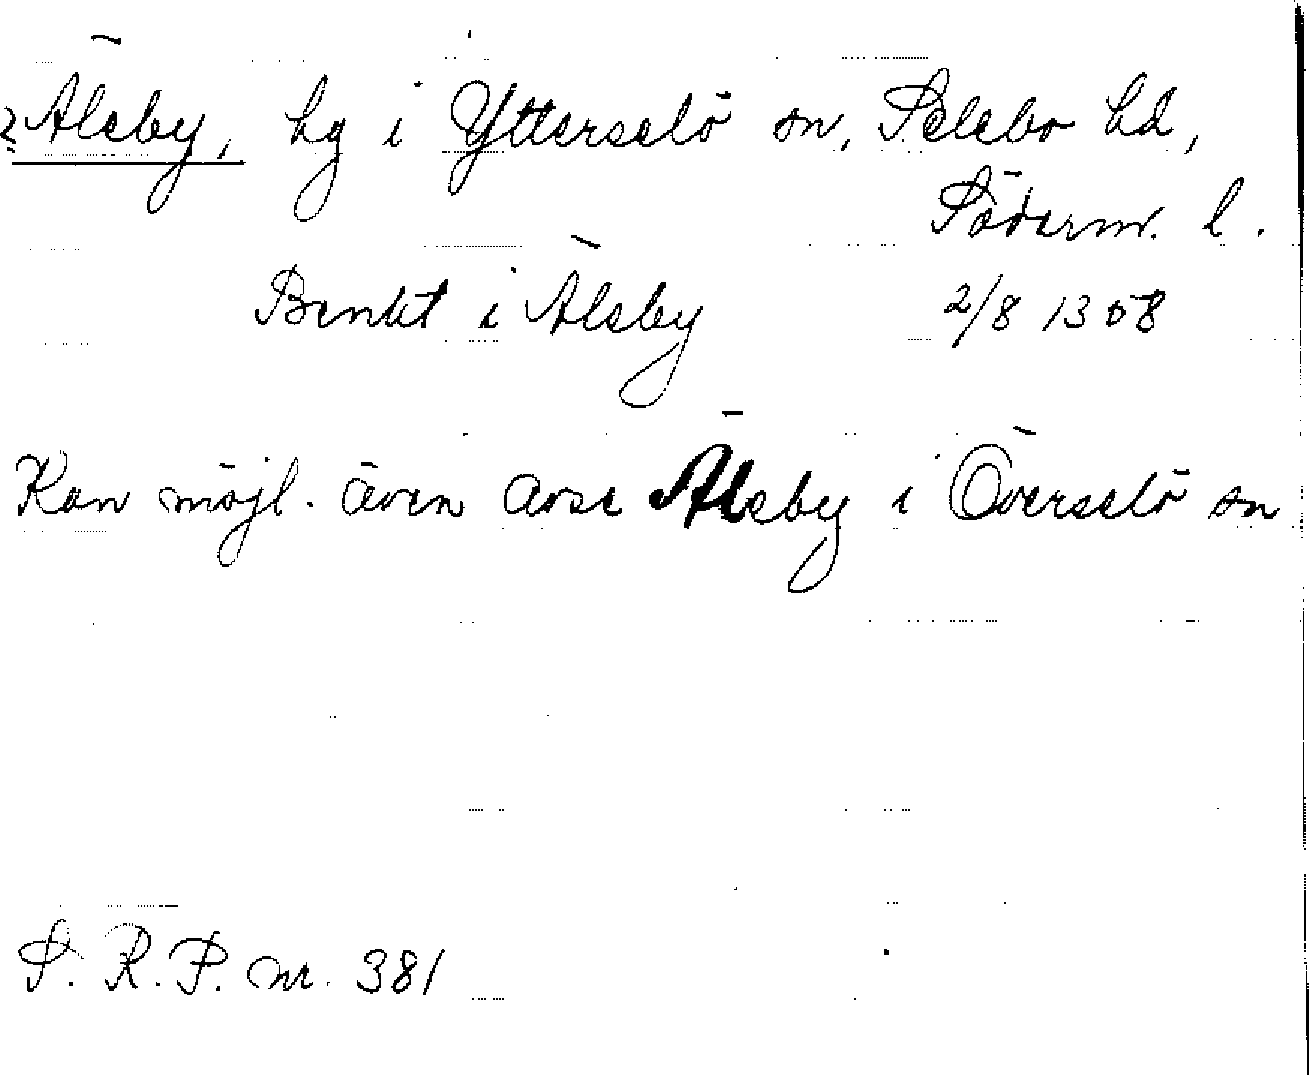 ? Älsby, hg i Ytterselö sn, Selebo hd,
Söderm. l.
Benkt i Älsby 2/8 1308
Kan möjl. även avse Älsby i Överselö sn
S. R. P. nr. 381